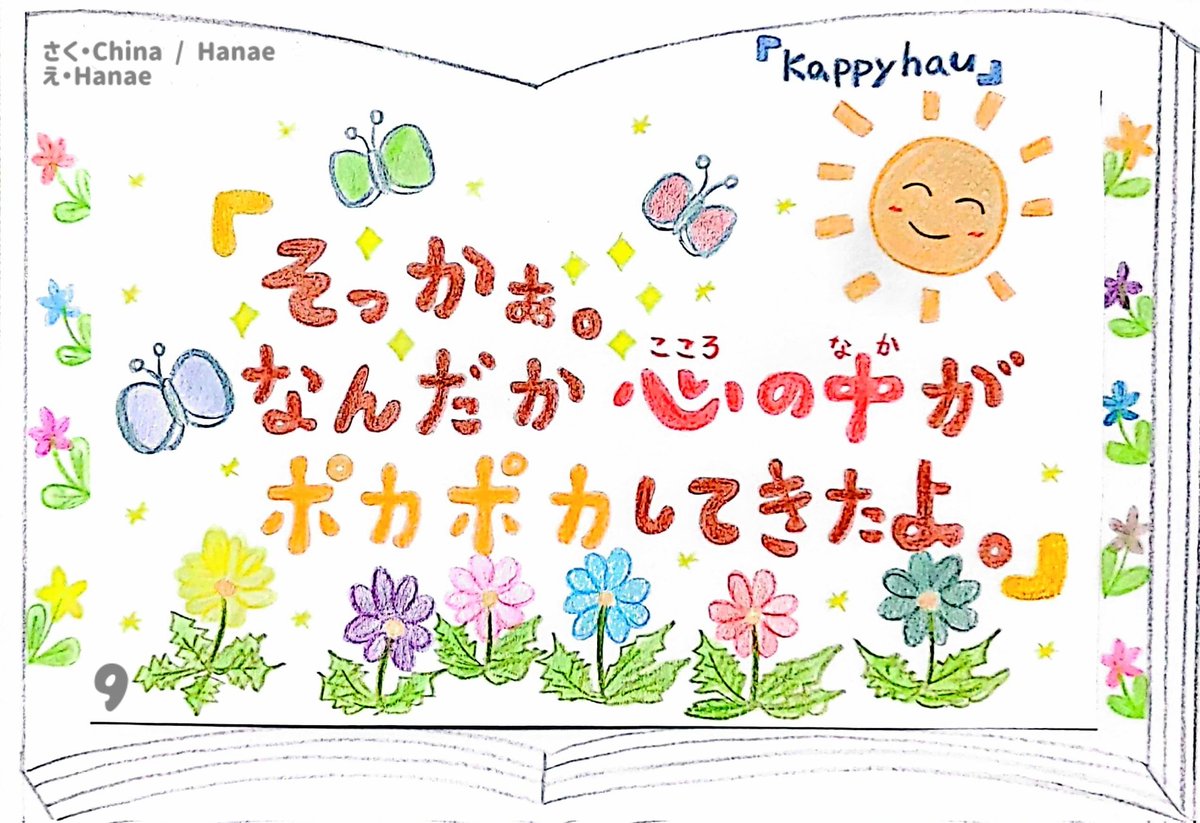 さく・China / Hanae
え・Hanae
『Kappyhau』
「そっかぁ。
なんだか心の中が
こころ
なか
ポカポカしてきたよ。」
9